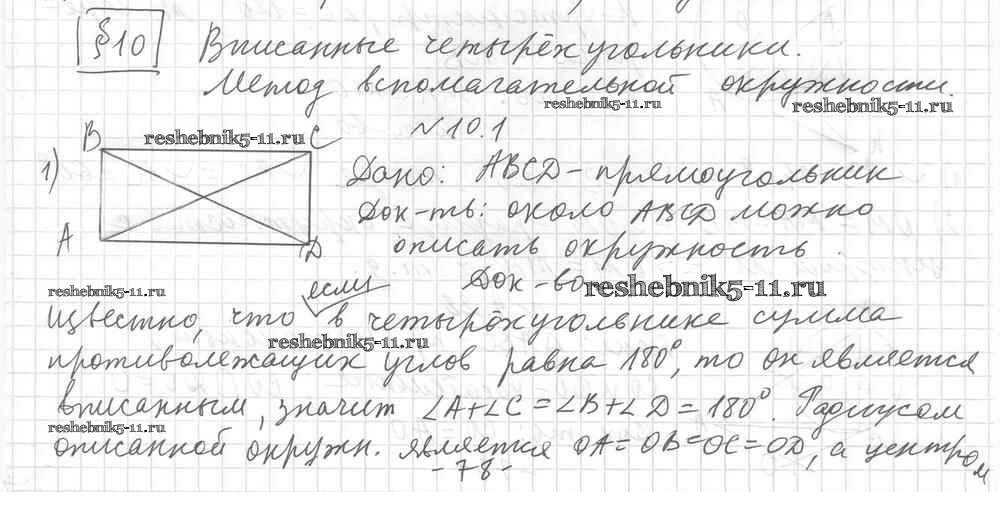 §10 Вписанные четырёхугольники.
Метод вспомагательной окружности.
reshebnik5-11.ru
reshebnik5-11.ru
reshebnik5-11.ru
№10.1
1)
B
C
A
D
Дано: ABCD - прямоугольник
Док-ть: около ABCD можно
описать окружность.
Док-во
reshebnik5-11.ru
reshebnik5-11.ru
если
Известно, что в четырёхугольнике сумма
reshebnik5-11.ru
противолежащих углов равна 180°, то он является
вписанным, значит ∠A+∠C=∠B+∠D=180°. Радиусом
reshebnik5-11.ru
описанной окружн. является OA=OB=OC=OD, а центром
-78-